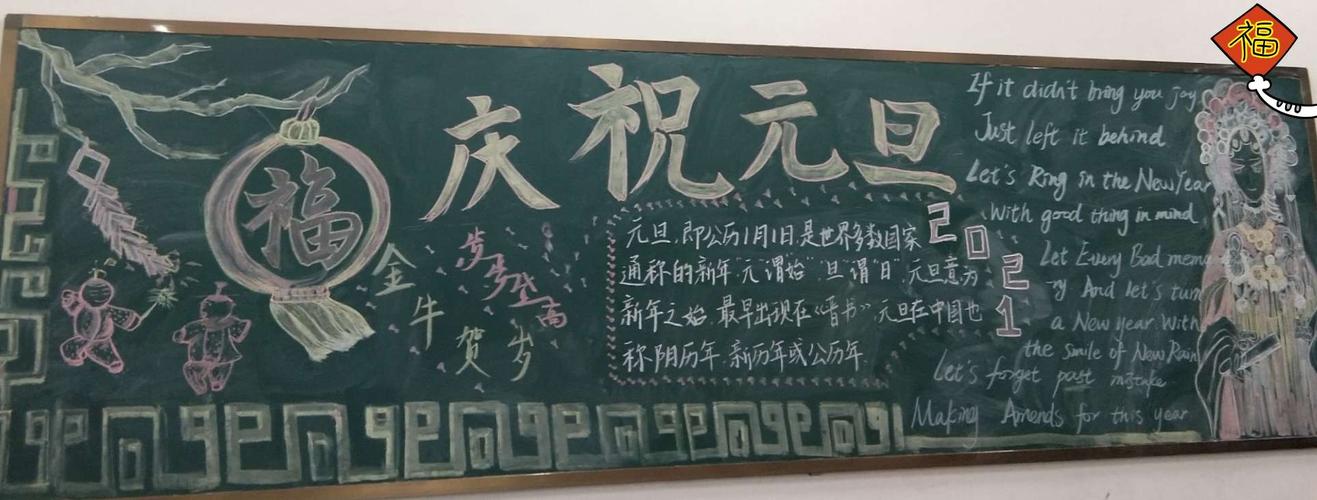 福
庆祝元旦
福
金牛贺岁
步步登高
元旦,即公历1月1日,是世界多数国家
通称的新年"元"谓"始""旦"谓"日"元旦意为
新年之始.最早出现在《晋书》.元旦在中国也
称阴历年.新历年或公历年.
2021
If it didn't bring you joy
Just left it behind
Let's Ring in the New Year
With good thing in mind
Let Every Bad memo
ry And let's turn
a New year With
the smile of New Rain
Let's forget past mistake
Making Amends for this year